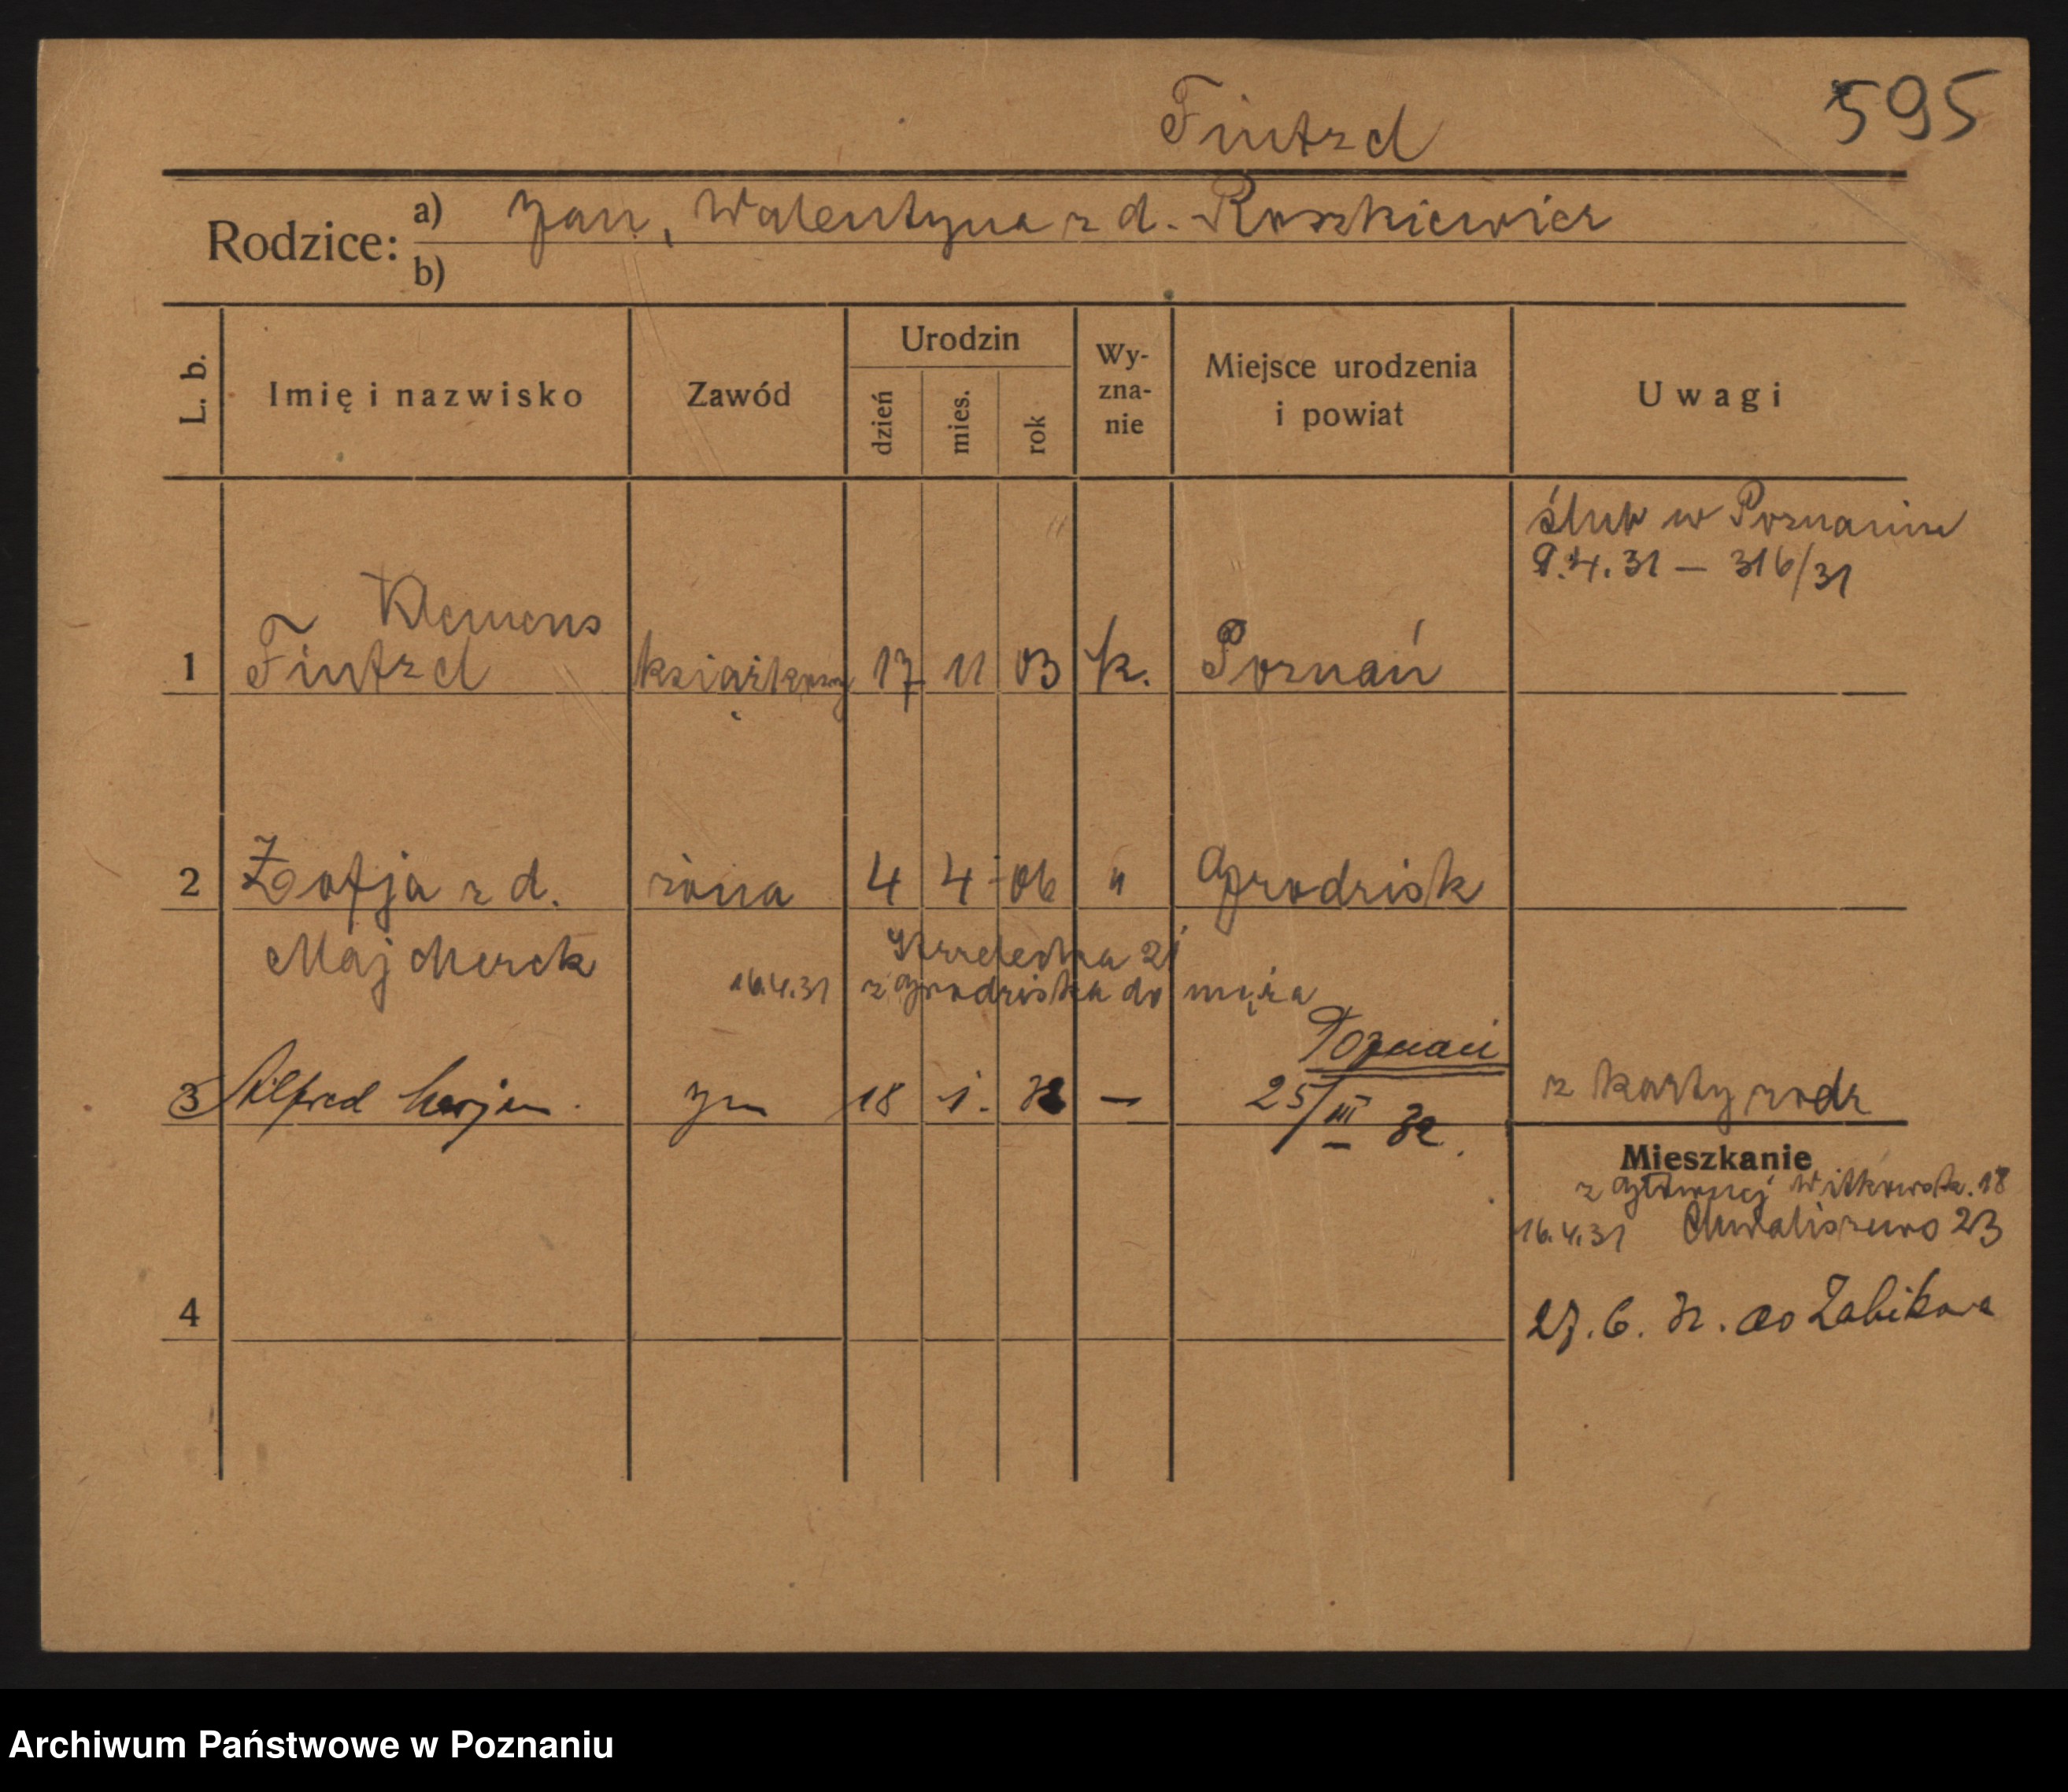 595
Fintzel
Rodzice: a) Jan, Walentyna z d. Roszkiewicz
b)
L. b.
Imię i nazwisko
Zawód
Urodzin
dzień
mies.
rok
Wy-
zna-
nie
Miejsce urodzenia
i powiat
Uwagi
ślub w Poznaniu
9.4.31 – 316/31
Klemens
1 Fintzel 17 11 03 k. Poznań
2 Zofja z d. żona 4 4 06 " Grodzisk
Majcherek
Strzelecka 21
16.4.31 z Grodziska do męża
Poznań
3 Alfred Marjan syn 18 1. 32 — 25/III 32. z karty rodz
Mieszkanie
z Głównej Witkowska. 18
16.4.31 Chwaliszewo 23
4
27. 6. 32. do Żabikowa
Archiwum Państwowe w Poznaniu